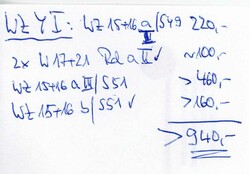 WZ YI: WZ 15+16 a II/S49 220,-
2x W17+21 Rd a II ✓ ~100,-
WZ 15+16 a II/S51 >460,-
WZ 15+16 b/S51 ✓ >160,-
>940,-